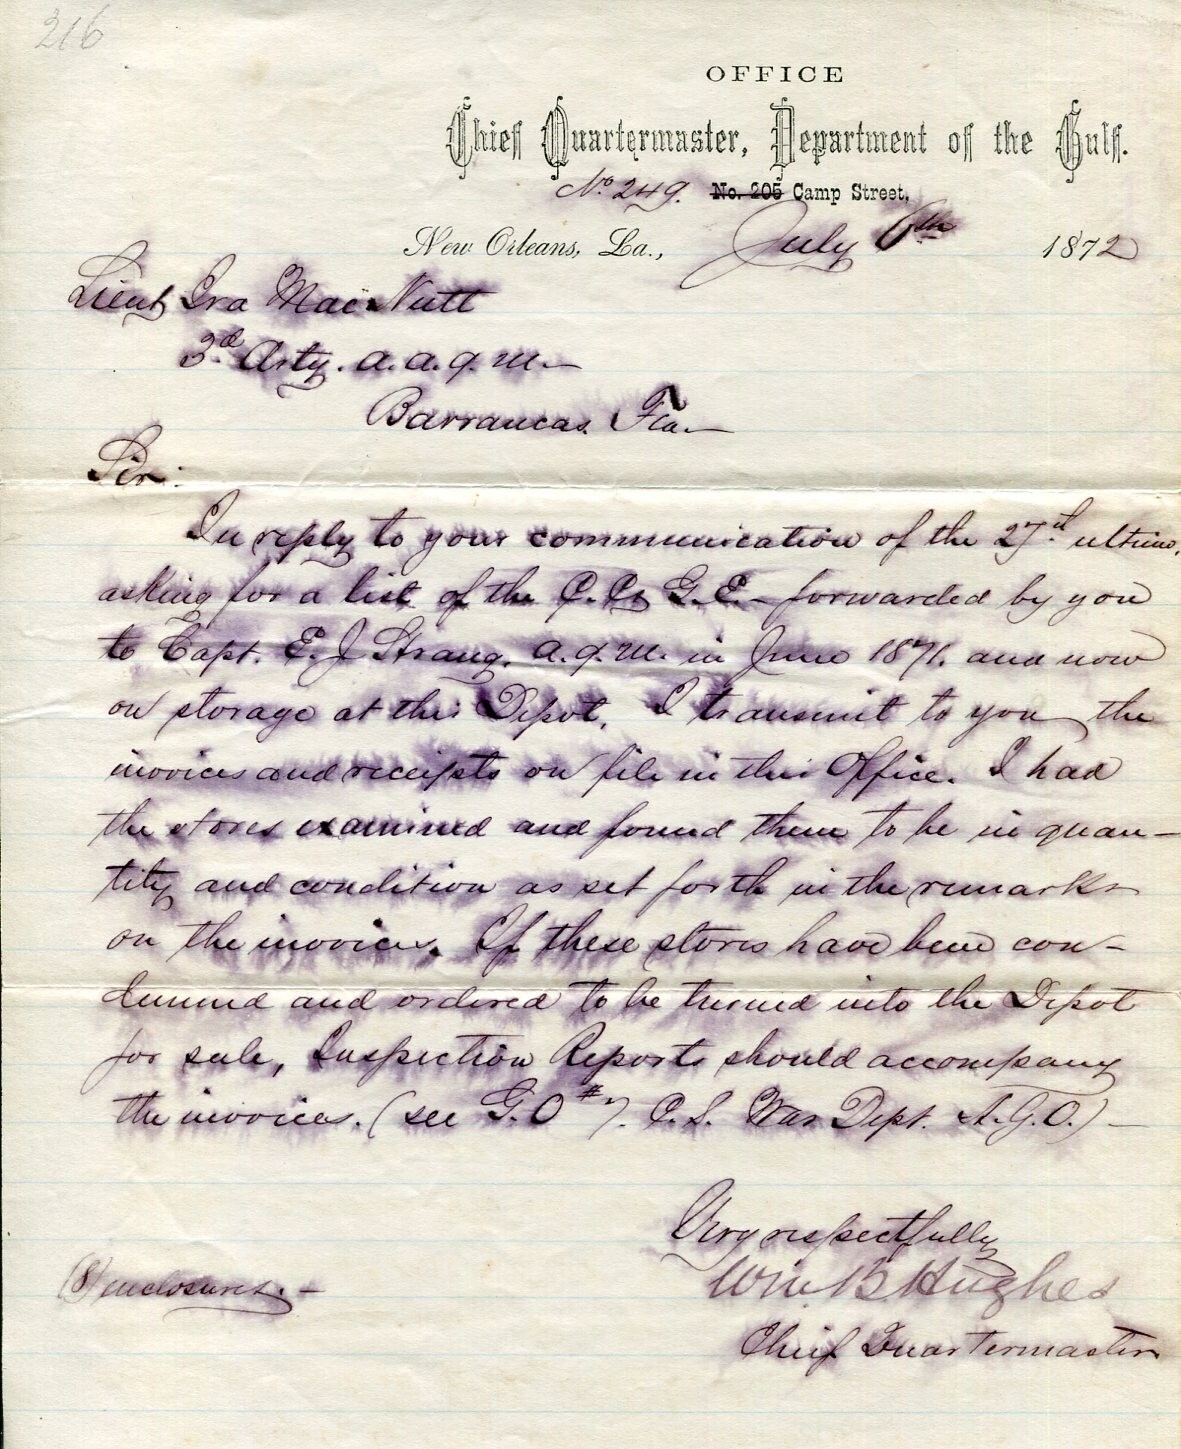 216
OFFICE
Chief Quartermaster, Department of the Gulf.
No. 249. No. 205 Camp Street,
New Orleans, La., July 6th 1872
Lieut Ira MacNutt
3d Arty. A. A. Q. M.—
Barrancas Fla.—
Sir:
In reply to your communication of the 27th ultimo,
asking for a list of the C. C. & G. E.— forwarded by you
to Capt. E. J. Strang, A. Q. M. in June 1871. and now
on storage at this Depot, I transmit to you the
invoices and receipts on file in this Office. I had
the stores examined and found them to be in quan-
tity and condition as set forth in the remarks
on the invoices. If these stores have been con-
demned and ordered to be turned into the Depot
for sale, Inspection Reports should accompany
the invoices. (see G.O # 7. C. S. War Dept. A. G. O.) —
Very respectfully
Wm B Hughes
(8) enclosures. —
Chief Quartermaster